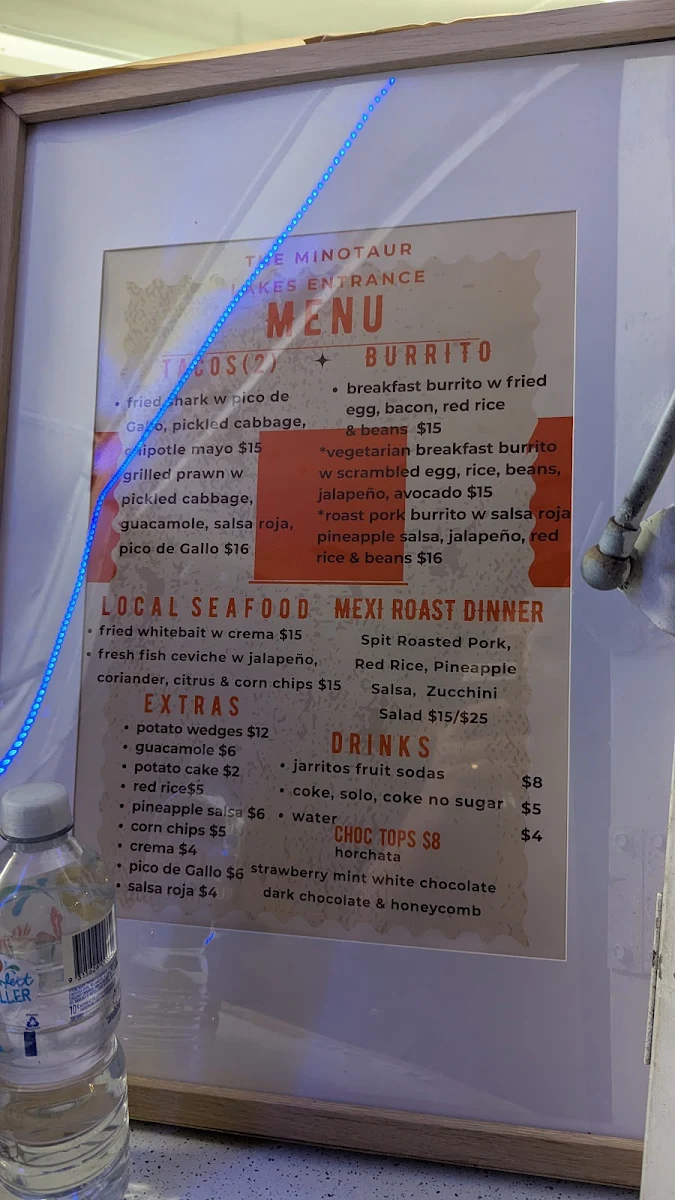 THE MINOTAUR
LAKES ENTRANCE
MENU
TACOS(2)
• fried shark w pico de
Gallo, pickled cabbage,
chipotle mayo $15
grilled prawn w
pickled cabbage,
guacamole, salsa roja,
pico de Gallo $16
BURRITO
• breakfast burrito w fried
egg, bacon, red rice
& beans $15
*vegetarian breakfast burrito
w scrambled egg, rice, beans,
jalapeño, avocado $15
*roast pork burrito w salsa roja
pineapple salsa, jalapeño, red
rice & beans $16
LOCAL SEAFOOD
• fried whitebait w crema $15
• fresh fish ceviche w jalapeño,
coriander, citrus & corn chips $15
MEXI ROAST DINNER
Spit Roasted Pork,
Red Rice, Pineapple
Salsa, Zucchini
Salad $15/$25
EXTRAS
• potato wedges $12
• guacamole $6
• potato cake $2
• red rice$5
• pineapple salsa $6
• corn chips $5
• crema $4
• pico de Gallo $6
• salsa roja $4
DRINKS
• jarritos fruit sodas $8
• coke, solo, coke no sugar $5
• water $4
CHOC TOPS $8
horchata
strawberry mint white chocolate
dark chocolate & honeycomb